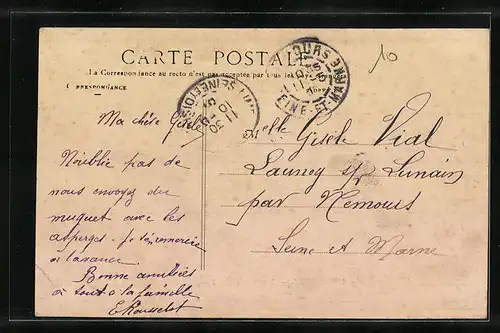 CARTE POSTALE
La Correspondance au recto n'est pas acceptée par tous les
CORRESPONDANCE
10
Ma chère Gisèle
N'oublie pas de
nous envoyez du
muguet avec les
asperges. Je t'en remercie
à l'avance
Bonne amitiés
à tout à la famille
E Rousselet
Melle Gisèle Vial
Launoy s/ Lunain
par Nemours
Seine et Marne
SEINE-ET-MARNE